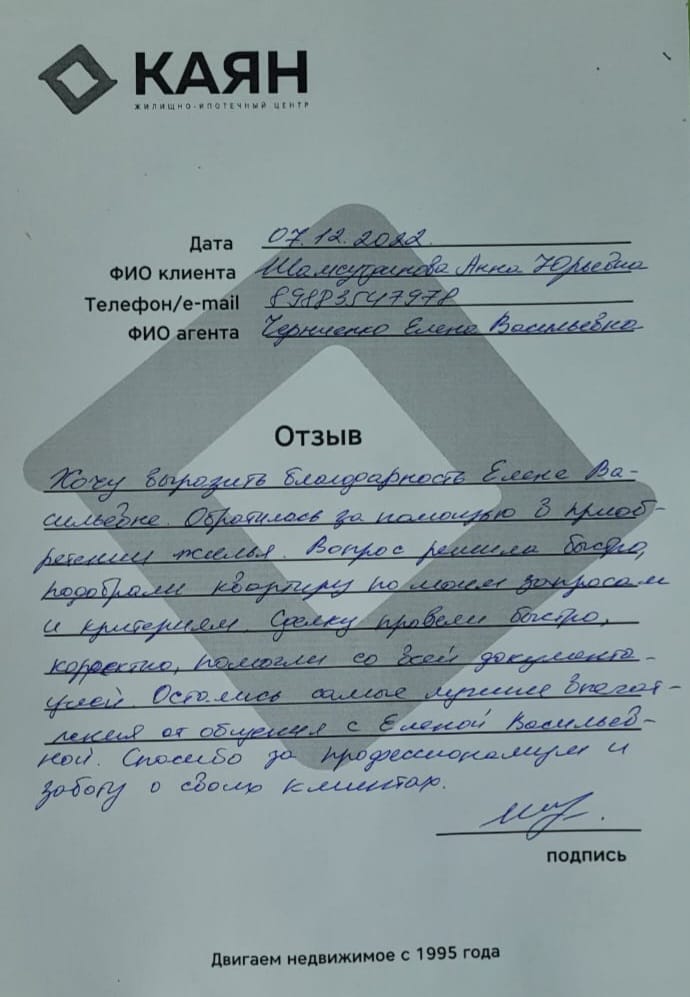 КАЯН
ЖИЛИЩНО-ИПОТЕЧНЫЙ ЦЕНТР
Дата 07.12.2022.
ФИО клиента Шамсутдинова Анна Юрьевна
Телефон/e-mail 89883547978
ФИО агента Черниенко Елена Васильевна
Отзыв
Хочу выразить благодарность Елене Ва-
сильевне. Обратилась за помощью в приоб-
ретении жилья. Вопрос решила быстро,
подобрали квартиру по моим запросам
и критериям. Сделку провели быстро,
корректно, помогли со всей документа-
цией. Остались самые лучшие впечат-
ления от общения с Еленой Васильев-
ной. Спасибо за профессионализм и
заботу о своих клиентах.
подпись
Двигаем недвижимое с 1995 года